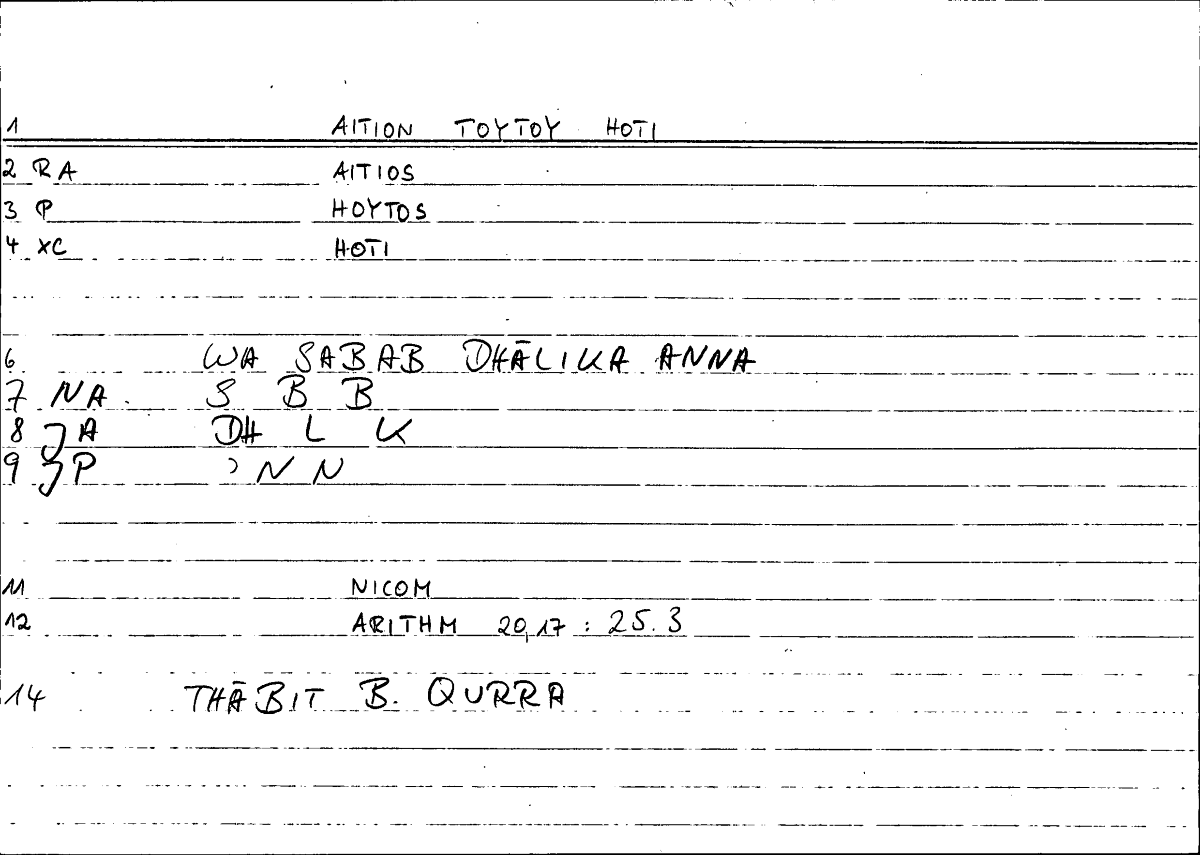 1 AITION TOYTOY HOTI
2 RA AITIOS
3 P HOYTOS
4 XC HOTI
6 WA SABAB DHĀLIKA ANNA
7 NA S B B
8 JA DH L K
9 JP ʾ N N
11 NICOM
12 ARITHM 20,17 : 25.3
14 THĀBIT B. QURRA